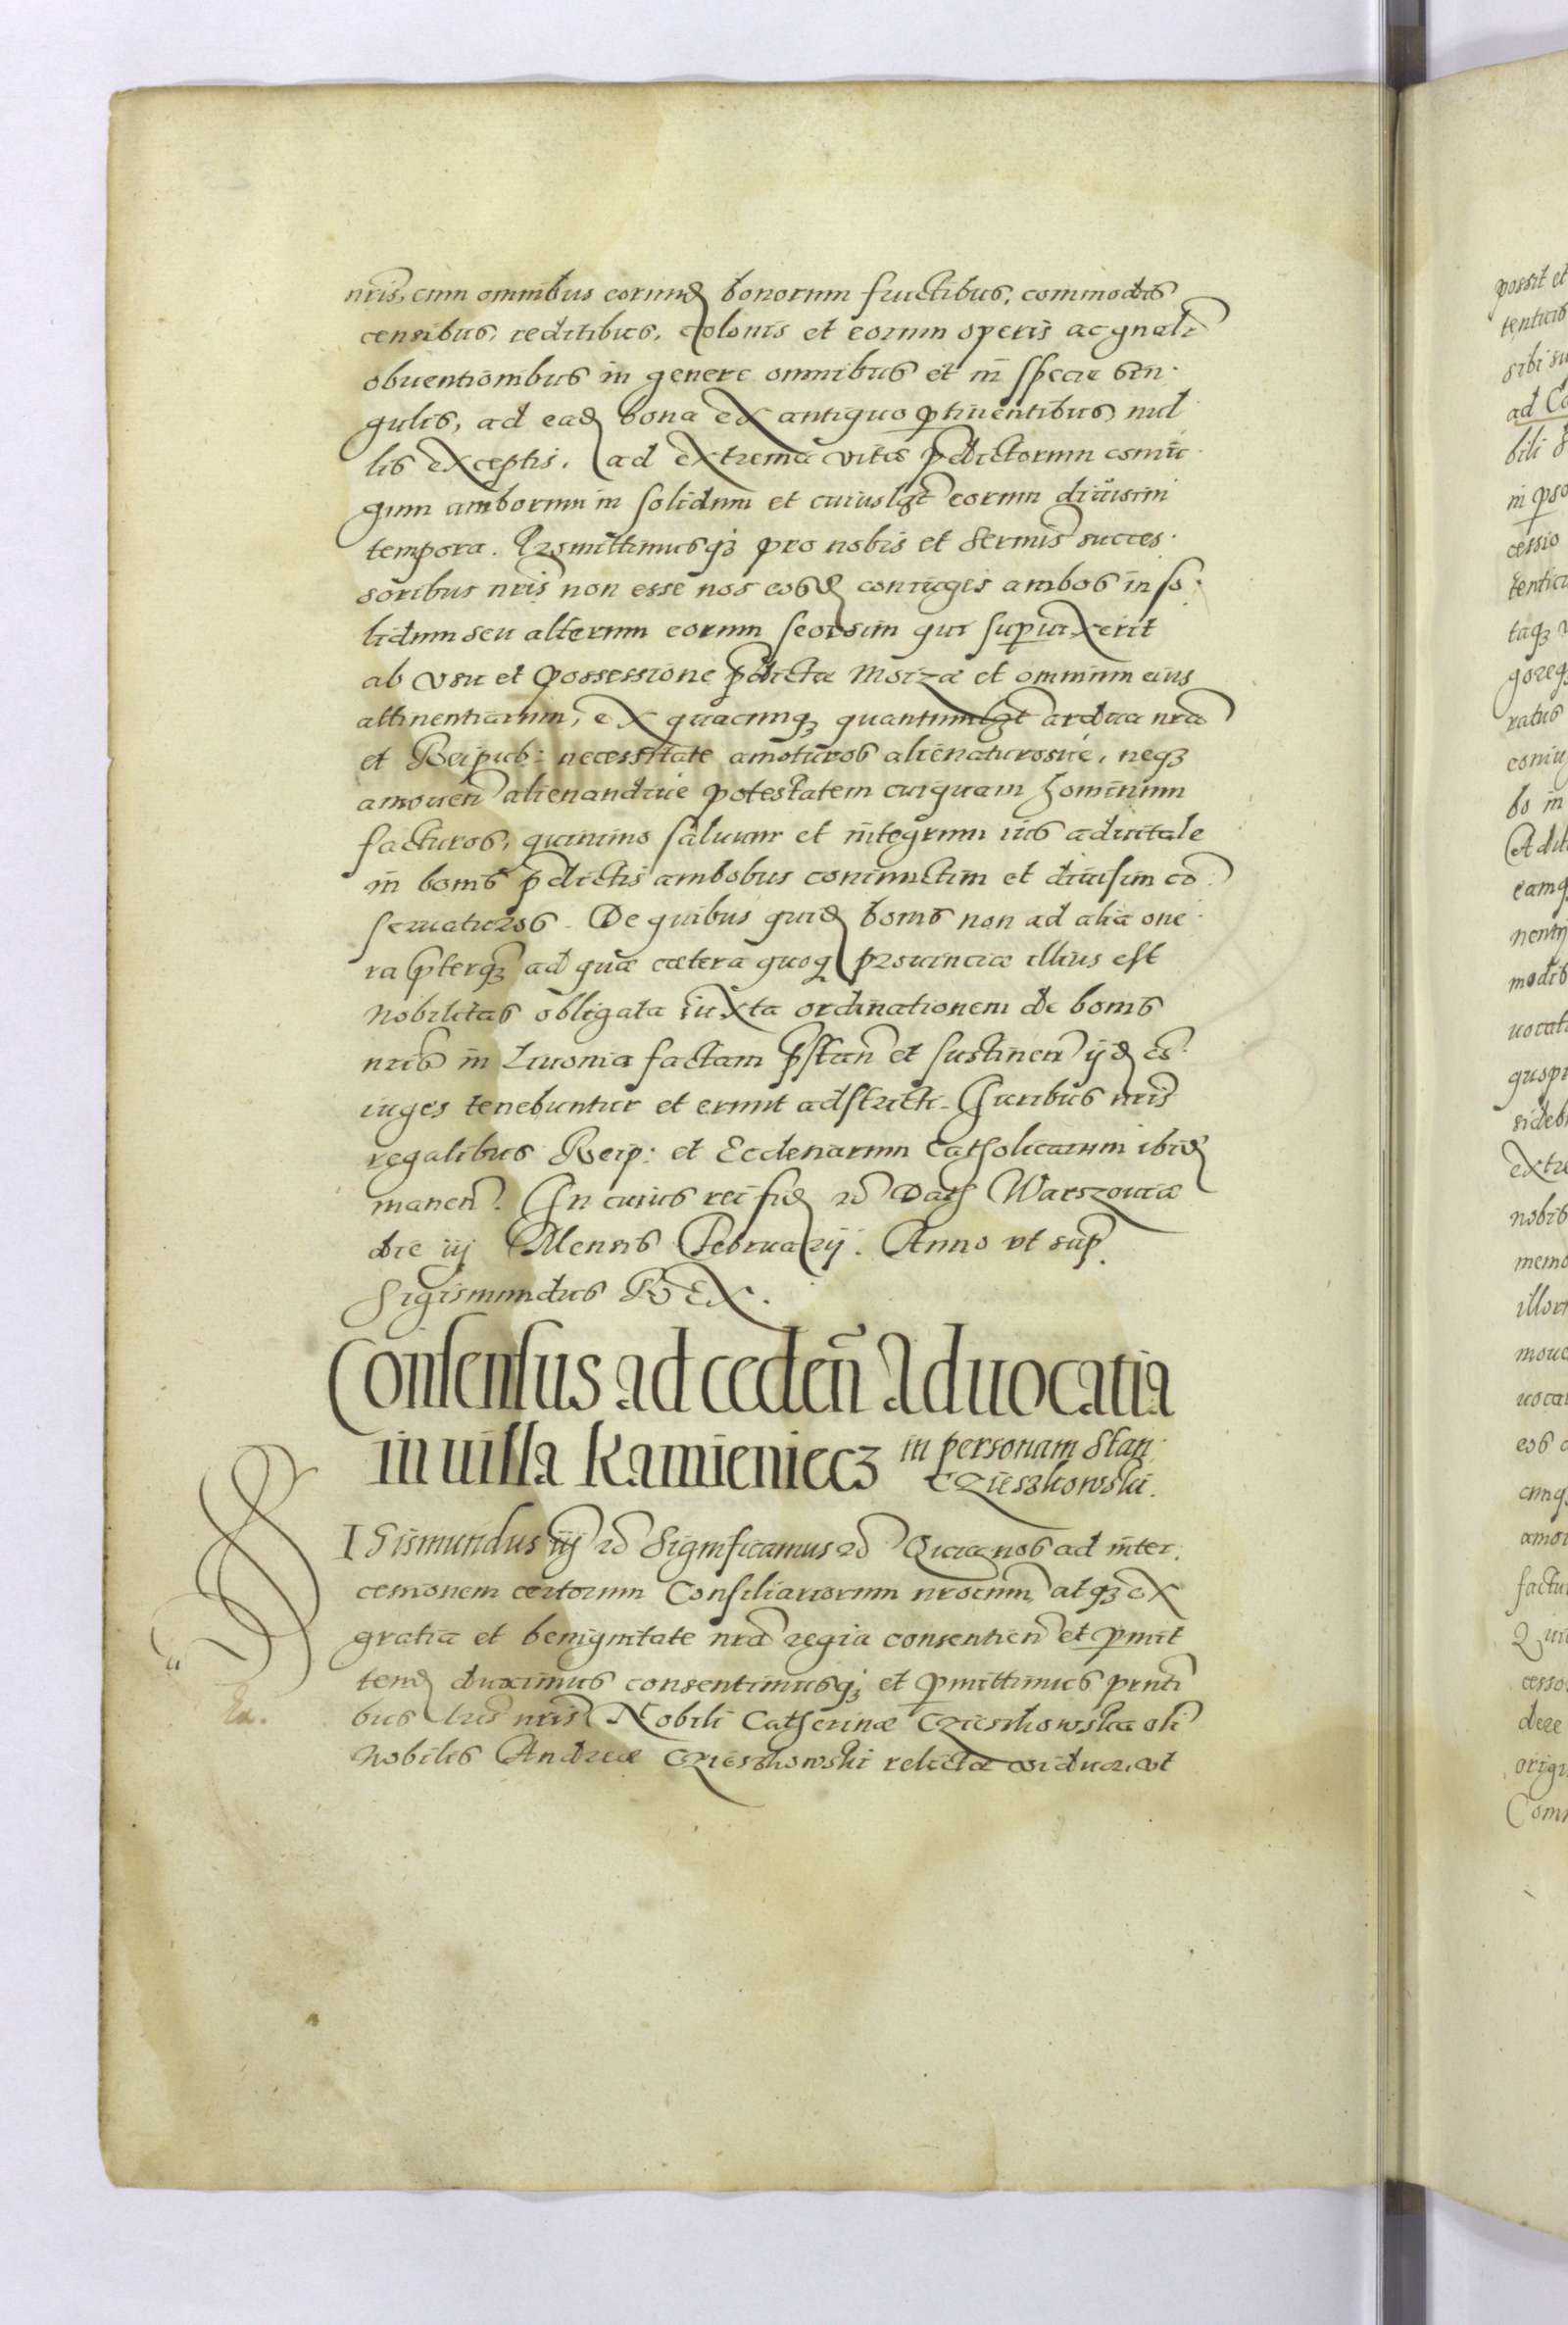 nris, cum omnibus eorund bonorum fructibus, commodis
censibus, reditibus, colonis et eorum operis ac gnali
obventionibus in genere omnibus et in specie sin-
gulis, ad ead bona ex antiquo ptinentibus, nul-
lis exceptis, ad extrema vitæ pdictorum coniu-
gum amborum in solidum et cuiuslzt eorum divisim
tempora. Promittimusq3 pro nobis et sermis succes-
soribus nris non esse nos eosd coniuges ambos in so-
lidum seu alterum eorum seorsim qui supvixerit
ab usu et possessione pdictæ Moizæ et omnium eius
attinentiarum, ex quacunq3 quantumlzt ardua nra
et Reipub: necessitate amoturos alienaturosve, neq3
amoven alienandive potestatem cuiquam hominum
facturos, quinimo salvum et integrum ius advitale
in bonis pdictis ambobus coniunctim et divisim co-
servaturos. De quibus quid bonis non ad alia one-
ra pterq3 ad quæ cætera quoq provinciæ illius est
Nobilitas obligata iuxta ordinationem de bonis
nris in Livonia factam pstan et sustinen ijd co-
iuges tenebuntur et erunt adstricti. Iuribus nris
regalibus Reip: et Ecclenarum Catholicarum ibid
manen. In cuius rei fid &c Dat Warszoviæ
die iij Mensis Februarij. Anno ut sup.
Sigismundus REX.
Consensus ad ceden Advocatia
in villa Kamieniecz in personam Stan:
Czieszkowski.
SIGismundus iij &c Significamus &c Quia nos ad inter-
cessionem certorum Consiliariorum nrorum, atq3 ex
gratia et benignitate nra regia consentien et pmit-
tend duximus consentimusq3 et pmittimus pnti-
bus lris nris Nobili Catherinæ Czieszkowska oli
Nobilis Andreæ Czieszkowski relictæ viduæ, ut